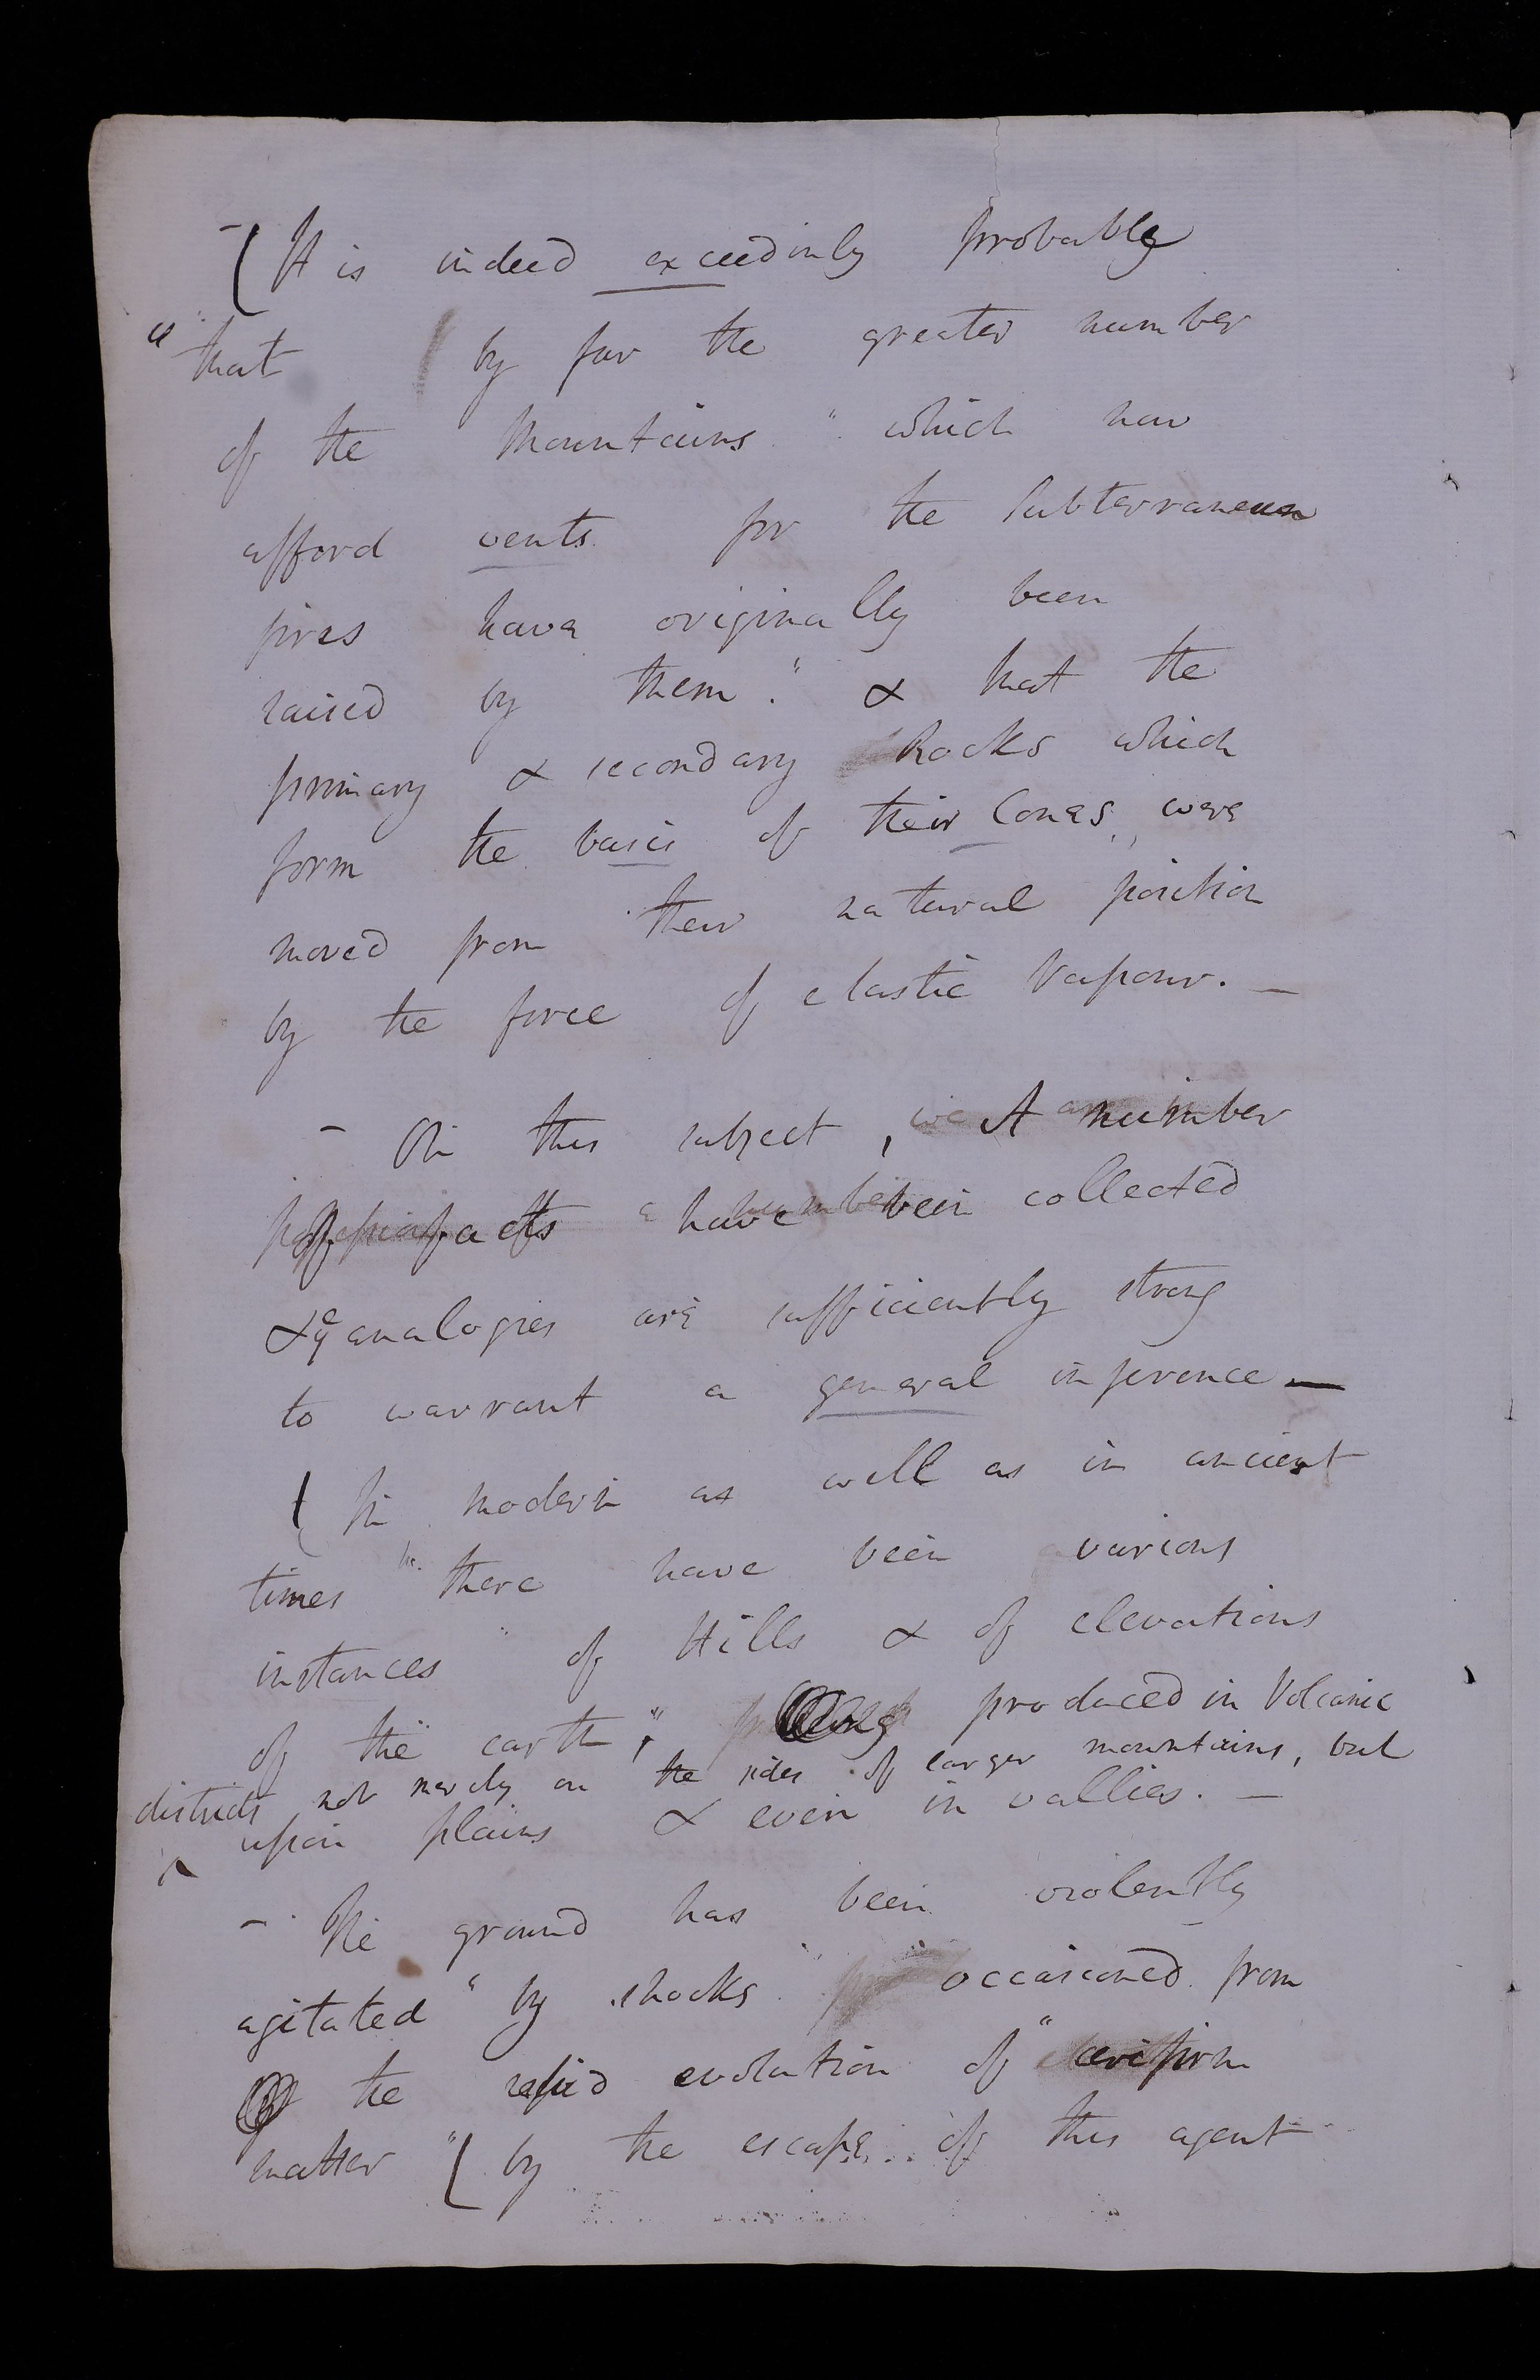 - ( It is indeed exceedinly probable
" that by far the greater number
of the Mountains " which now
afford vents for the subterranean
fires have originally been
raised by them." & that the
primary & secondary Rocks which
form the basis of their Cones, were
moved from their natural position
by the force of elastic Vapour. -
- On this subject, A number
of facts have been collected
& analogies are sufficiently strong
to warrant a general inference -
( In modern as well as in ancient
times " there have been various
instances " of Hills & of elevations
of the earth," produced in Volcanic
districts not merely on the sides of larger mountains, but
upon plains & even in vallies. -
- The ground has been violently
agitated " by shocks occasioned from
the rapid evolution of " aeriform
matter " ( by the escape of this agent